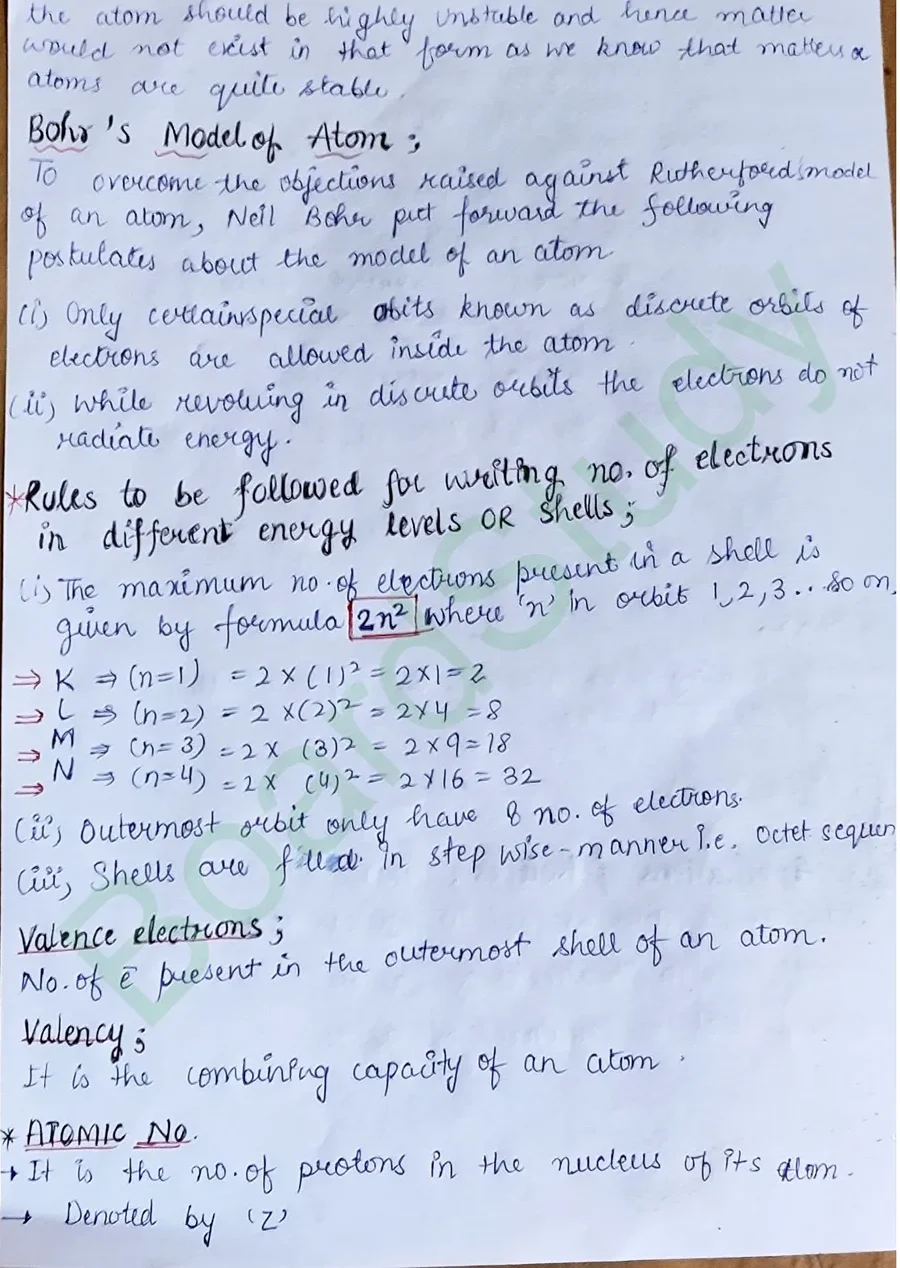 the atom should be highly unstable and hence matter
would not exist in that form as we know that matter &
atoms are quite stable.
Bohr's Model of Atom ;
To overcome the objections raised against Rutherford's model
of an atom, Neil Bohr put forward the following
postulates about the model of an atom
(i) Only certain special obits known as discrete orbits of
electrons are allowed inside the atom.
(ii) While revolving in discrete orbits the electrons do not
radiate energy.
*Rules to be followed for writing no. of electrons
in different energy levels OR Shells ;
(i) The maximum no. of electrons present in a shell is
given by formula 2n² where 'n' in orbit 1, 2, 3.. so on,
⇒ K ⇒ (n=1) = 2 × (1)² = 2×1 = 2
⇒ L ⇒ (n=2) = 2 ×(2)² = 2×4 = 8
⇒ M ⇒ (n=3) = 2× (3)² = 2×9 = 18
⇒ N ⇒ (n=4) = 2× (4)² = 2×16 = 32
(ii) Outermost orbit only have 8 no. of electrons.
(iii) Shells are filled in step wise-manner i.e. Octet sequen
Valence electrons ;
No. of ē present in the outermost shell of an atom.
Valency ;
It is the combining capacity of an atom.
* ATOMIC No.
→ It is the no. of protons in the nucleus of its atom.
→ Denoted by 'Z'
BoardStudy